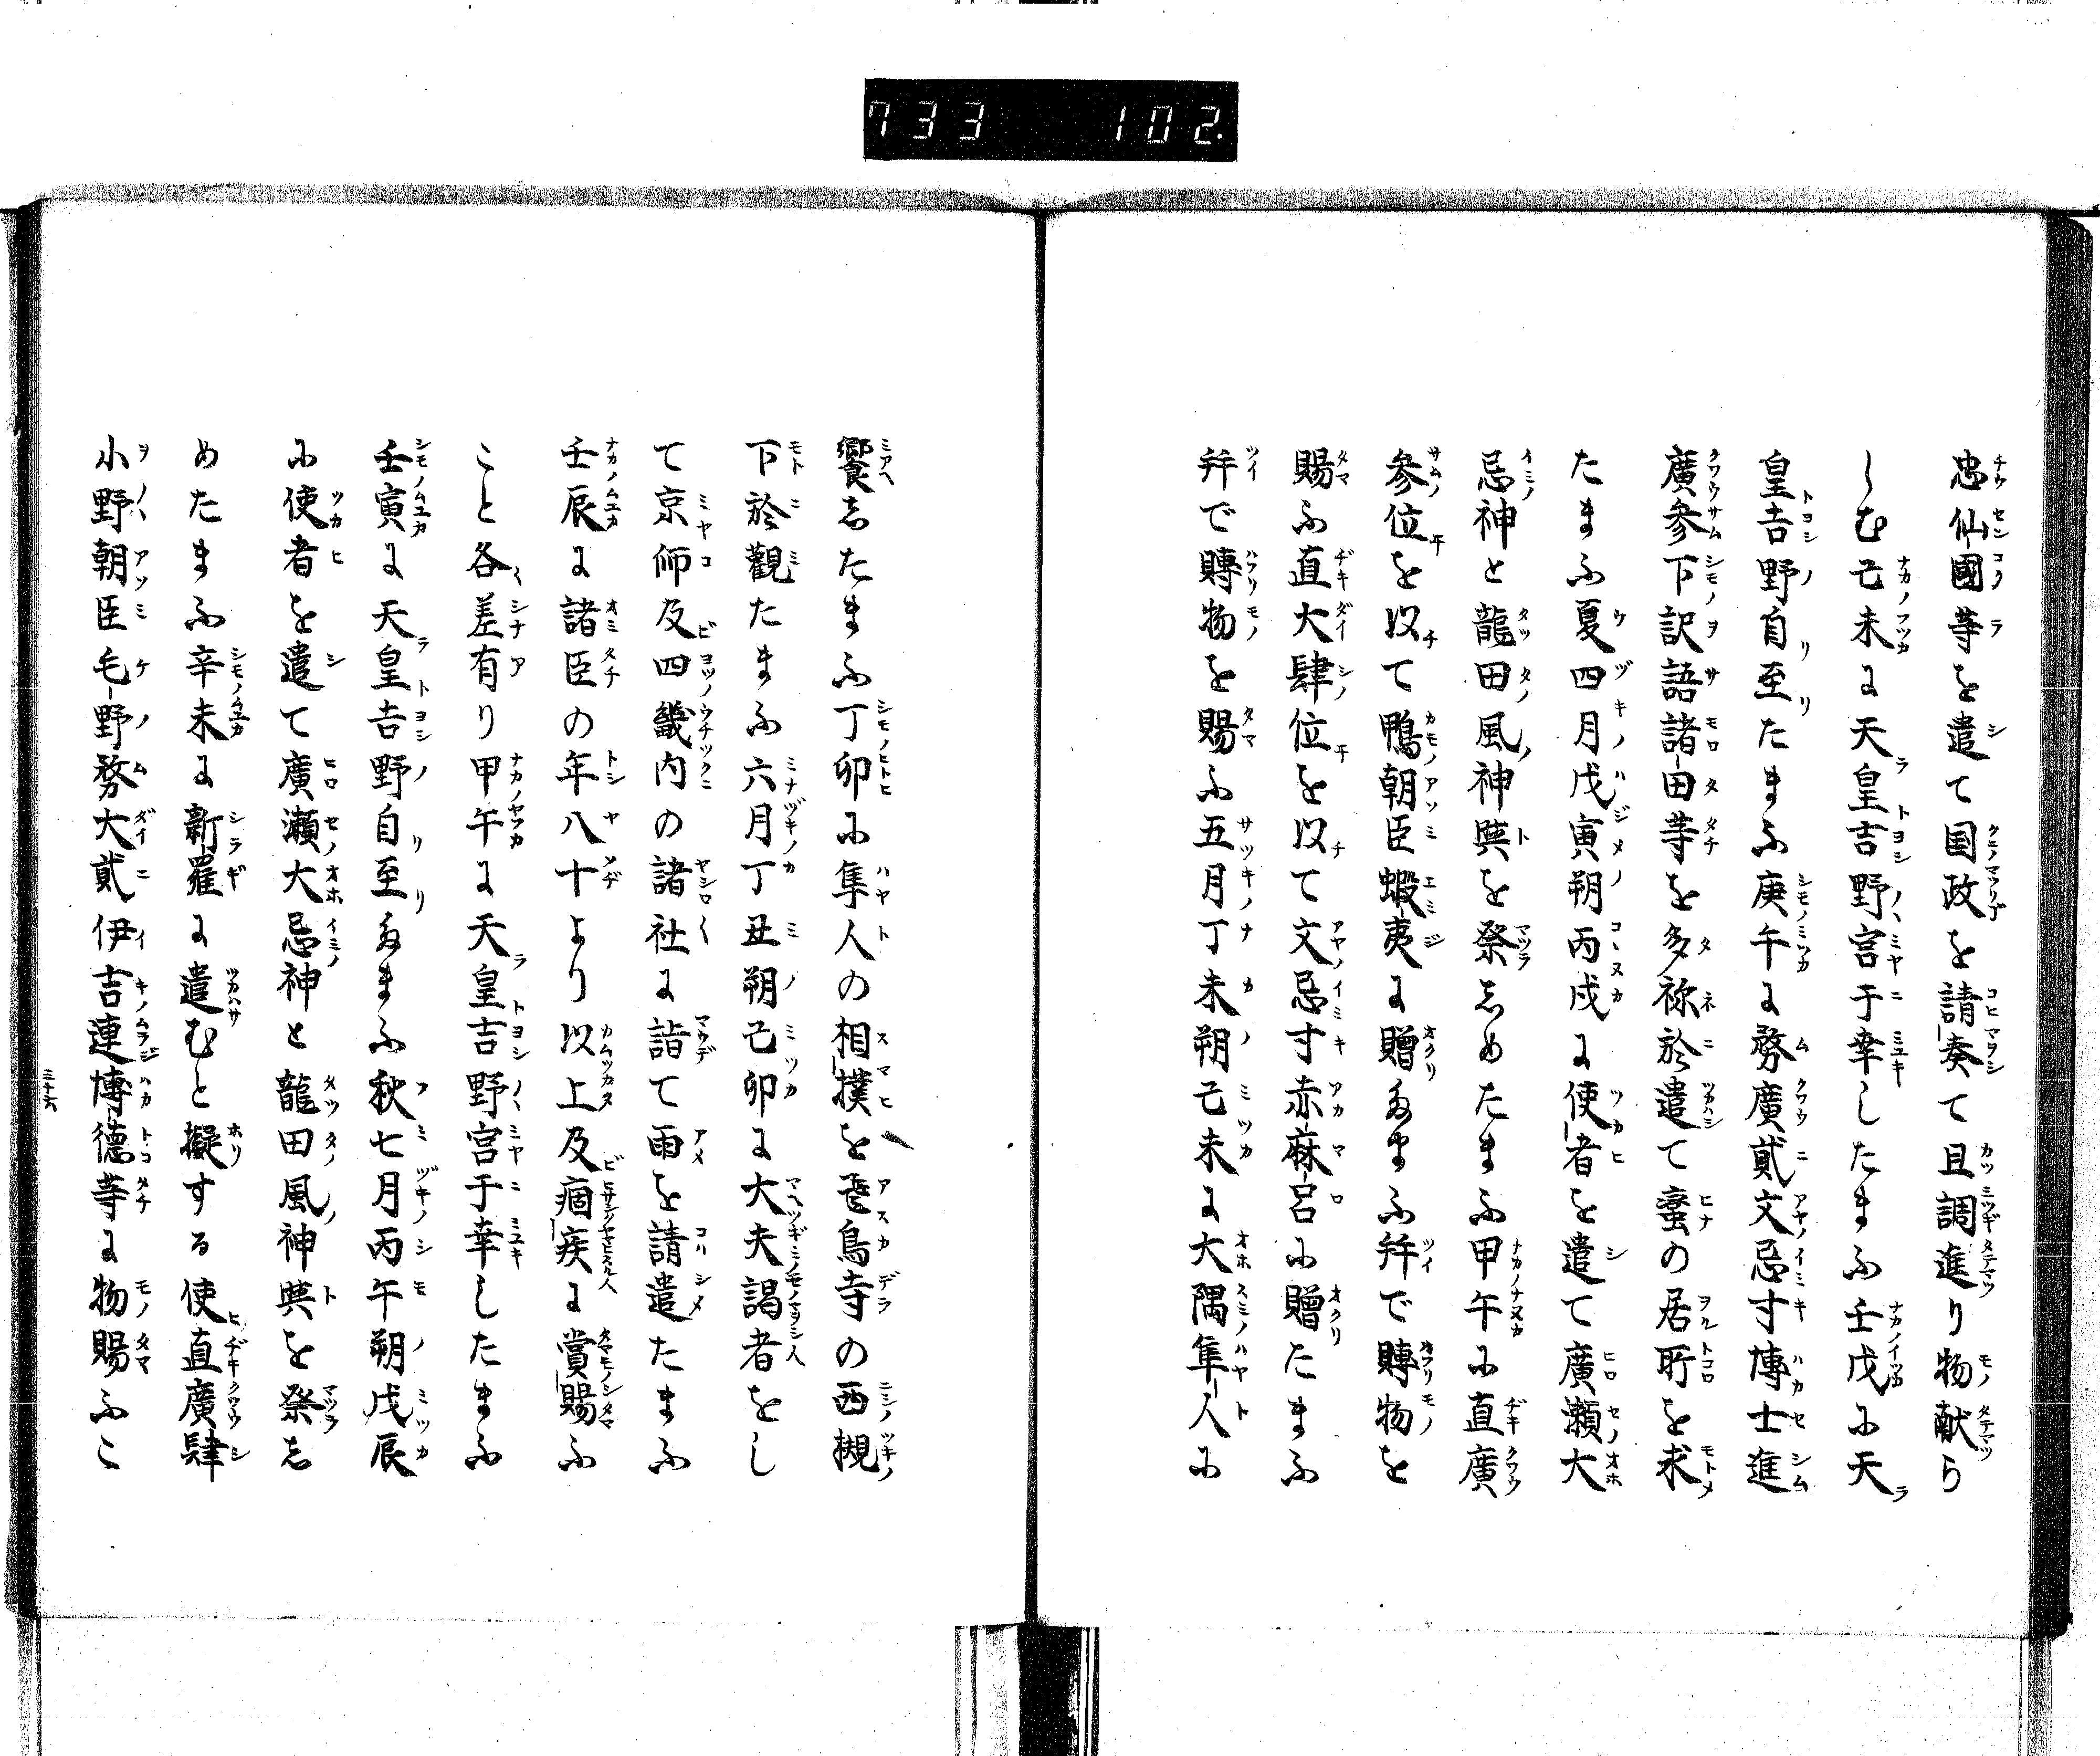 733 102.
忠仙國等を遣て国政を請奏て且調進り物献ら
しむ己未に天皇吉野宮于幸したまふ壬戊ふ天
皇吉野自至たまふ庚午に務廣貳文忌寸博士進
廣参下訳語諸田等を多祢於遣て蛮の居所を求
たまふ夏四月戊寅朔丙戌に使者を遣て廣瀬大
忌神と龍田風神與を祭志めたまふ甲午ふ直廣
参位を以て鴨朝臣蝦夷に贈たまふ并で賻物を
賜ふ直大肆位を以て文忌寸赤麻呂ふ贈たまふ
并で賻物を賜ふ五月丁未朔己未に大隅隼人ふ
饗志たまふ丁卯ふ隼人の相撲を飛鳥寺の西槻
下於觀たまふ六月丁丑朔己卯に大夫謁者をし
て京師及四畿内の諸社に詣て雨を請遣たまふ
壬辰に諸臣の年八十より以上及痼疾に賞賜ふ
こと各差有り甲午に天皇吉野宮于幸したまふ
壬寅に天皇吉野自至たまふ秋七月丙午朔戊辰
ふ使者を遣て廣瀬大忌神と龍田風神與を祭志
めたまふ辛未に新羅に遣むと擬する使直廣肆
小野朝臣毛野務大貳伊吉連博德等に物賜ふこ
三十六